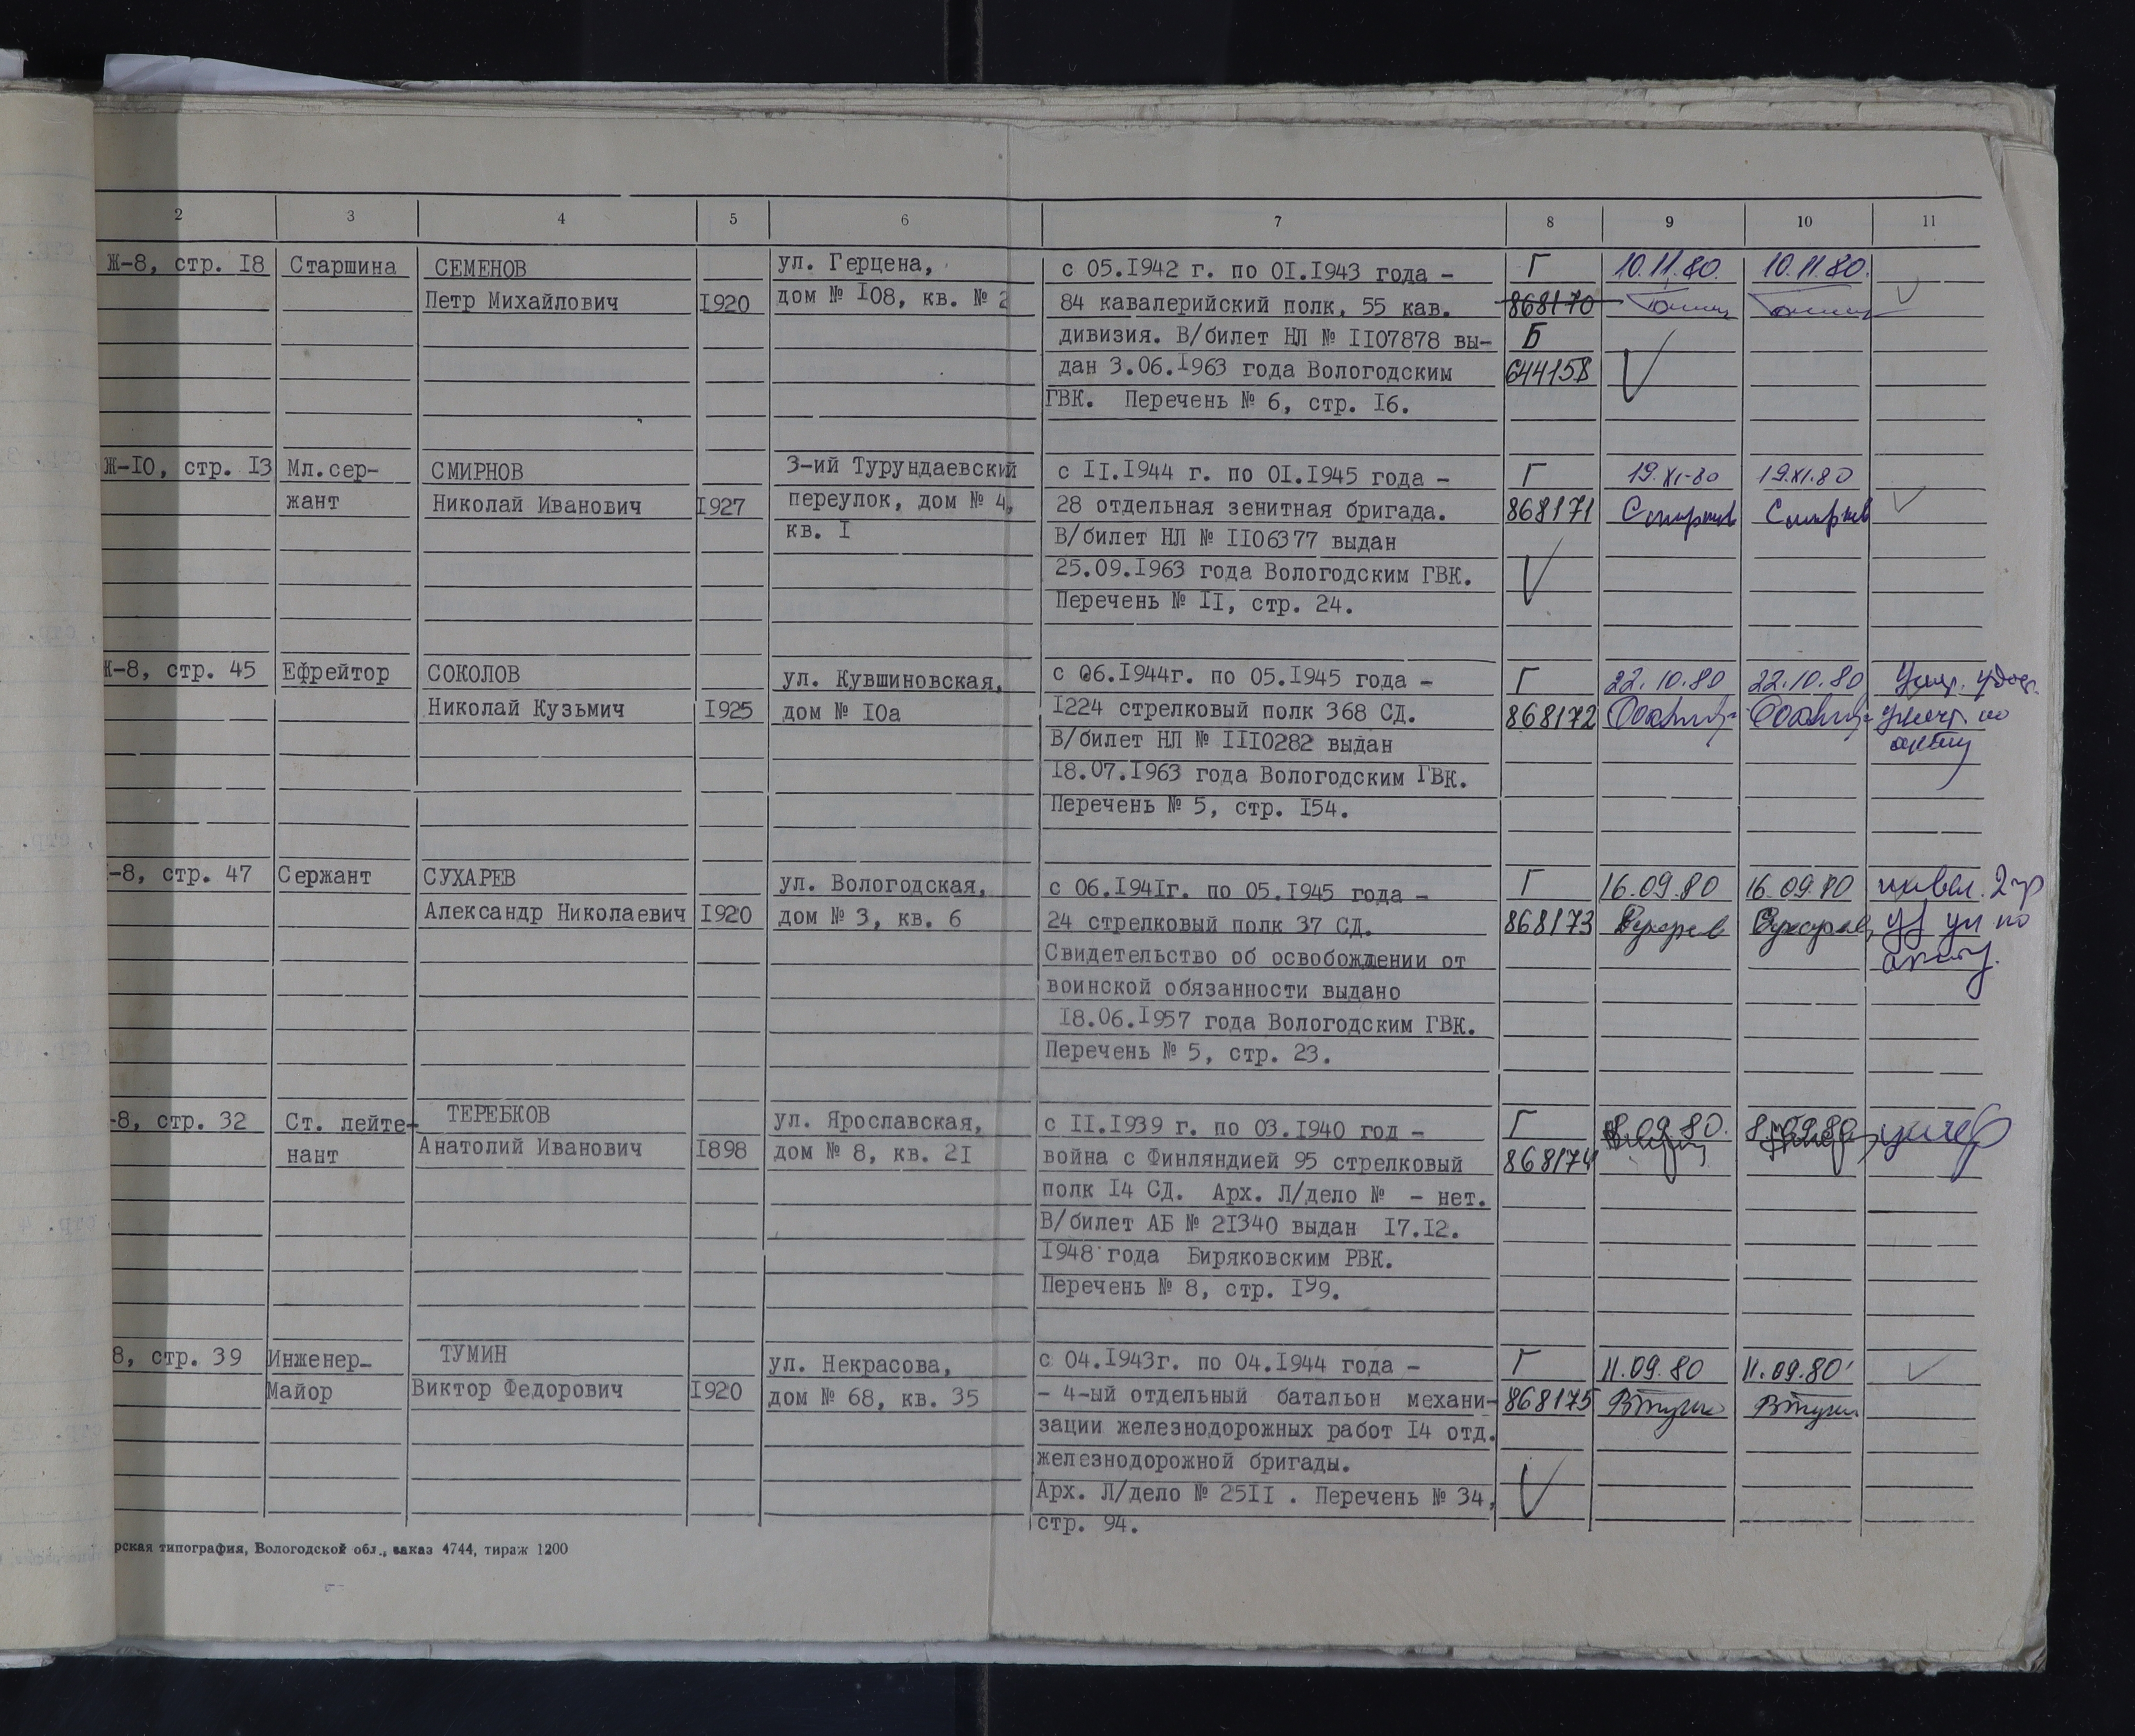 2 3 4 5 6 7 8 9 10 11
Ж-8, стр. I8 Старшина СЕМЕНОВ ул. Герцена, с 05.I942 г. по OI.I943 года - Г 10.11.80. 10.11.80.
Петр Михайлович I920 дом № I08, кв. № 2 84 кавалерийский полк, 55 кав. 868170
дивизия. В/билет НЛ № II07878 вы- Б
дан 3.06.I963 года Вологодским 644158
ГВК. Перечень № 6, стр. I6.
Ж-IO, стр. I3 Мл.сер- СМИРНОВ 3-ий Турундаевский с II.I944 г. по OI.I945 года - Г 19.XI-80 19.XI.80
жант Николай Иванович I927 переулок, дом № 4, 28 отдельная зенитная бригада. 868171 Смирнов Смирнов
кв. I В/билет НЛ № II06377 выдан
25.09.I963 года Вологодским ГВК.
Перечень № II, стр. 24.
Ж-8, стр. 45 Ефрейтор СОКОЛОВ ул. Кувшиновская, с 06.I944г. по 05.I945 года - Г 22.10.80 22.10.80 Умер. удос.
Николай Кузьмич I925 дом № IOа I224 стрелковый полк 368 СД. 868172 по
В/билет НЛ № IIIO282 выдан акту
I8.07.I963 года Вологодским ГВК.
Перечень № 5, стр. I54.
-8, стр. 47 Сержант СУХАРЕВ ул. Вологодская, с 06.I94Iг. по 05.I945 года - Г 16.09.80 16.09.80 инвал. 2 гр
Александр Николаевич I920 дом № 3, кв. 6 24 стрелковый полк 37 СД. 868173 Сухарев Сухарев уд ун по
Свидетельство об освобождении от акту.
воинской обязанности выдано
I8.06.I957 года Вологодским ГВК.
Перечень № 5, стр. 23.
-8, стр. 32 Ст. лейте- ТЕРЕБКОВ ул. Ярославская, с II.I939 г. по 03.I940 год - Г 8.09.80. 8.09.80 умер
нант Анатолий Иванович I898 дом № 8, кв. 2I война с Финляндией 95 стрелковый 868174
полк I4 СД. Арх. Л/дело № - нет.
В/билет АБ № 2I340 выдан I7.I2.
I948 года Биряковским РВК.
Перечень № 8, стр. I99.
8, стр. 39 Инженер- ТУМИН ул. Некрасова, с 04.I943г. по 04.I944 года - Г 11.09.80 11.09.80
Майор Виктор Федорович I920 дом № 68, кв. 35 - 4-ый отдельный батальон механи- 868175 ВТумин ВТумин
зации железнодорожных работ I4 отд.
железнодорожной бригады.
Арх. Л/дело № 25II . Перечень № 34,
стр. 94.
рская типография, Вологодской обл., заказ 4744, тираж 1200